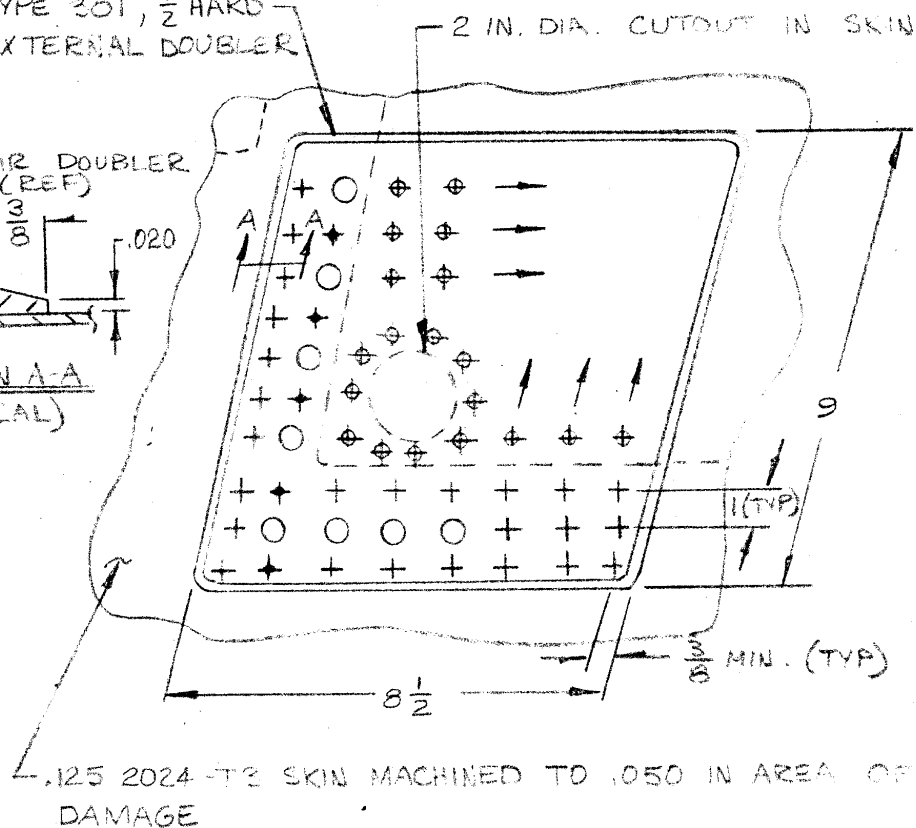 TYPE 301, 1/2 HARD
EXTERNAL DOUBLER
2 IN. DIA. CUTOUT IN SKIN
DOUBLER
(REF)
3/8
.020
A A
A-A
9
1 (TYP)
3/8 MIN. (TYP)
8 1/2
.125 2024-T3 SKIN MACHINED TO .050 IN AREA OF
DAMAGE